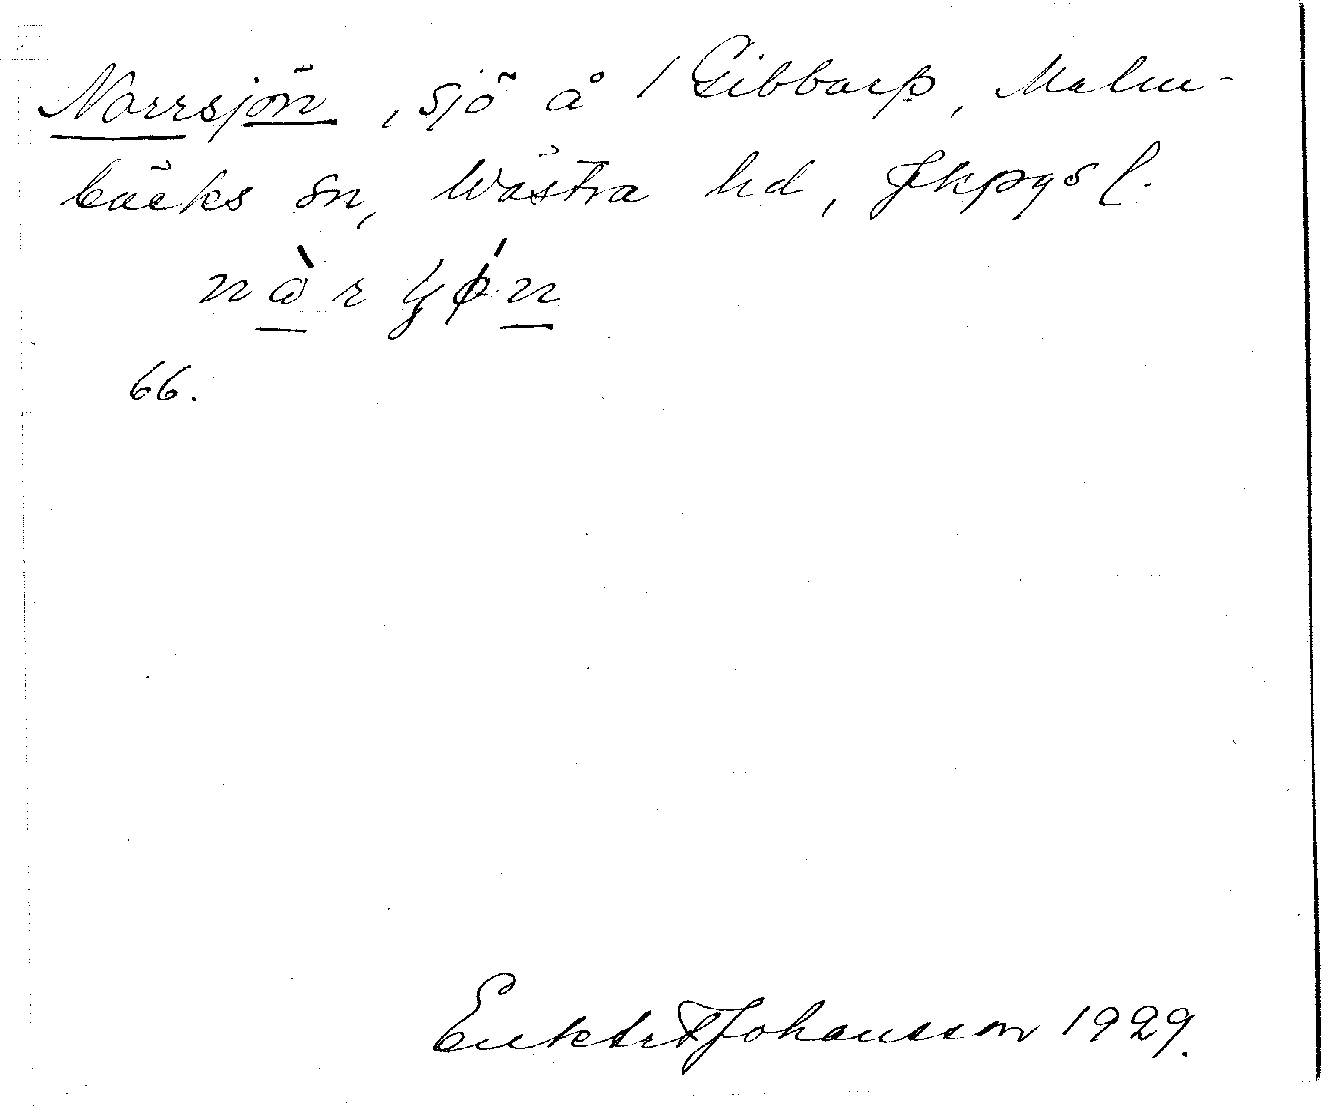 Norrsjön, sjö å /Gibbarp, Malm-
bäcks sn, Wästra hd, Jkpgs l.
66.
Johansson 1929.